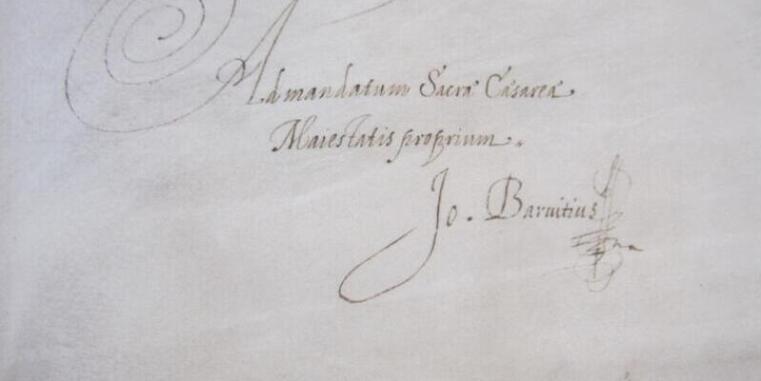 Ad mandatum Sacræ Cæsareæ
Maiestatis proprium.
Jo. Barvitius